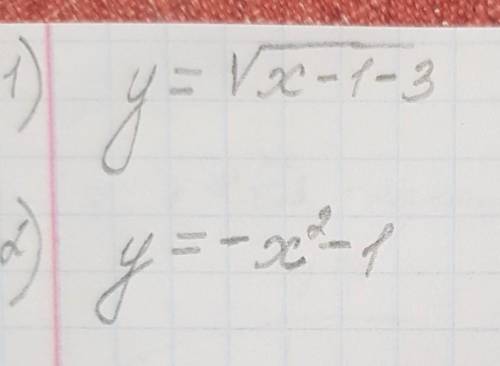 1) y = √x-1-3
2) y = -x²-1